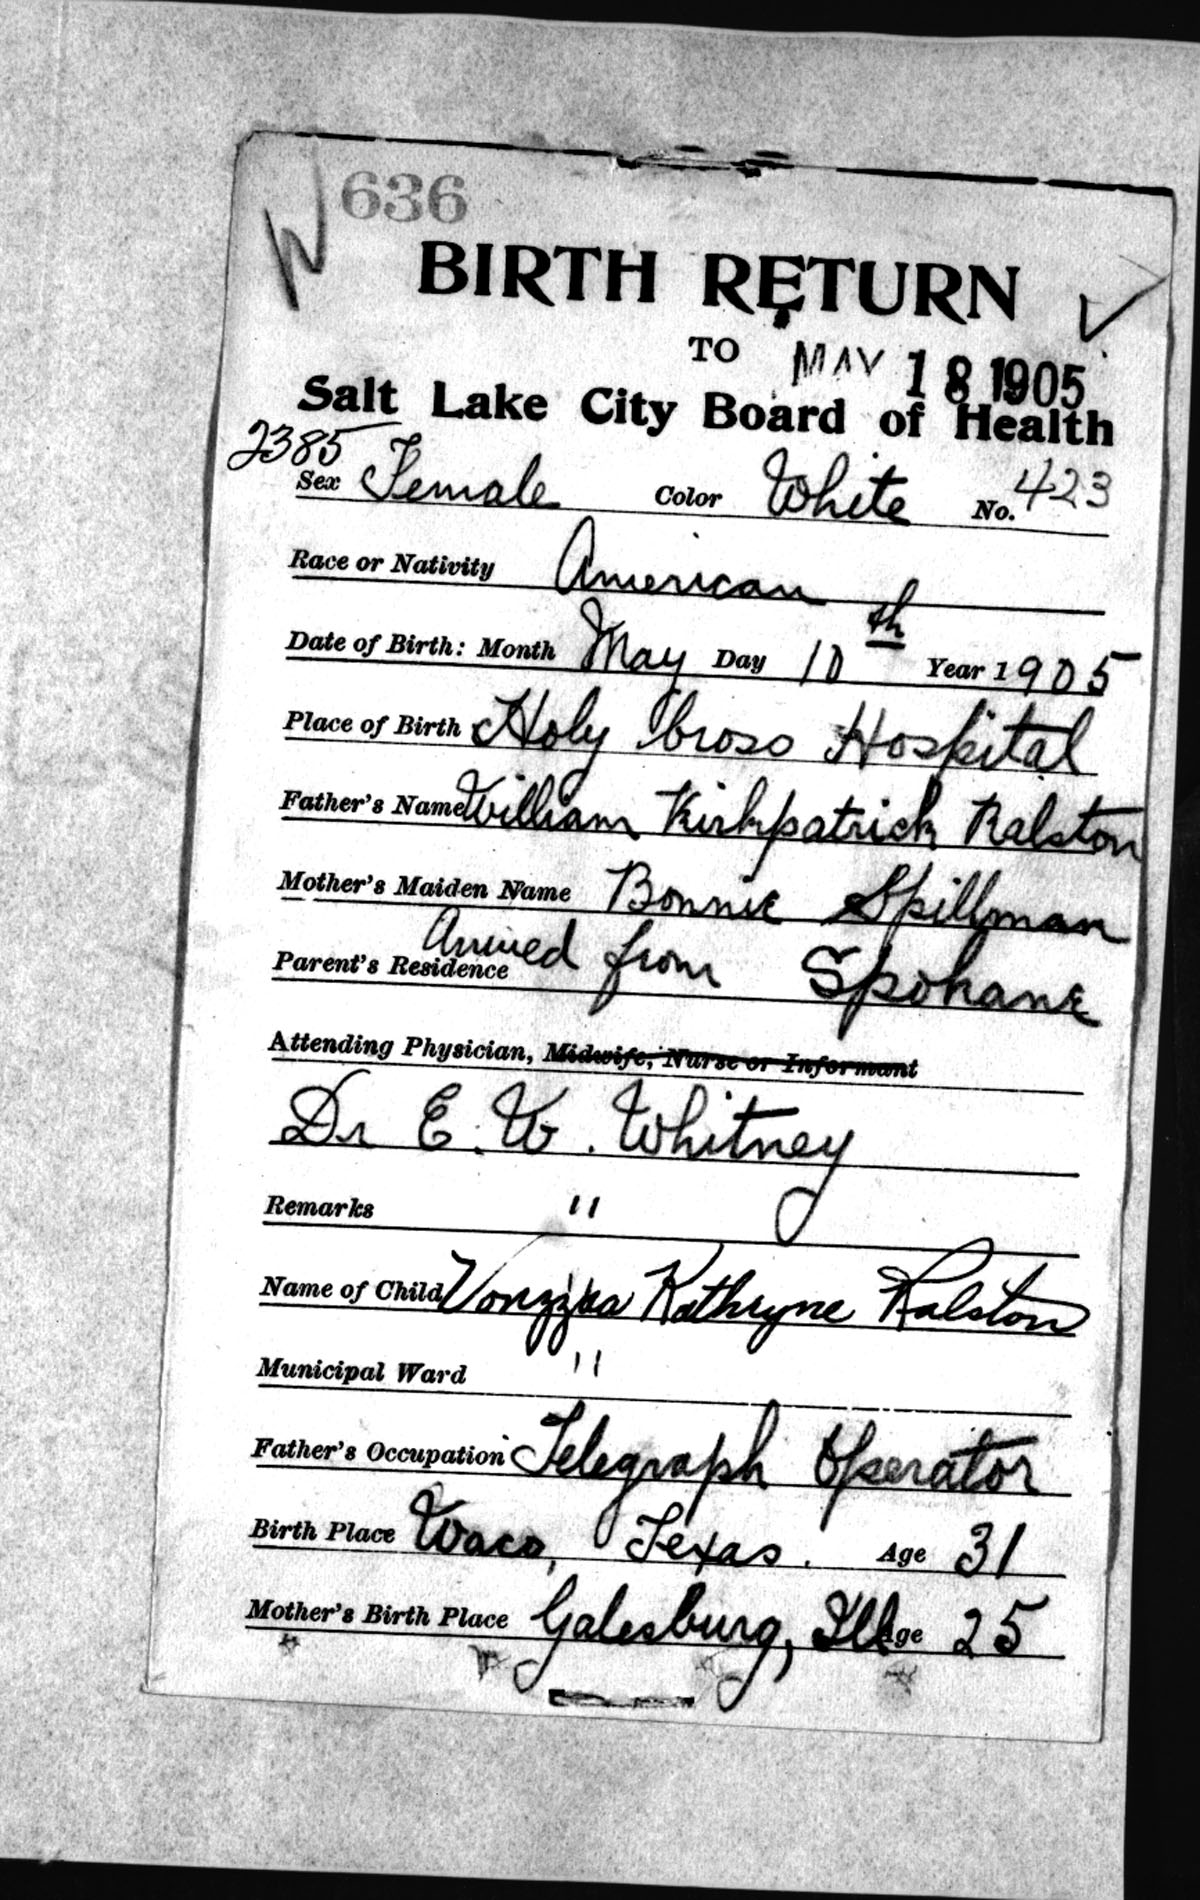 636
BIRTH RETURN
TO MAY 18 1905
Salt Lake City Board of Health
2385
Sex Female Color White No. 423
Race or Nativity American
Date of Birth: Month May Day 10th Year 1905
Place of Birth Holy Cross Hospital
Father's Name William Kirkpatrick Ralston
Mother's Maiden Name Bonnie Spillman
Parent's Residence Arrived from Spokane
Attending Physician, Midwife, Nurse or Informant
Dr E. W. Whitney
Remarks "
Name of Child Kathryne Ralston
Municipal Ward "
Father's Occupation Telegraph Operator
Birth Place Waco, Texas. Age 31
Mother's Birth Place Galesburg, Ill Age 25